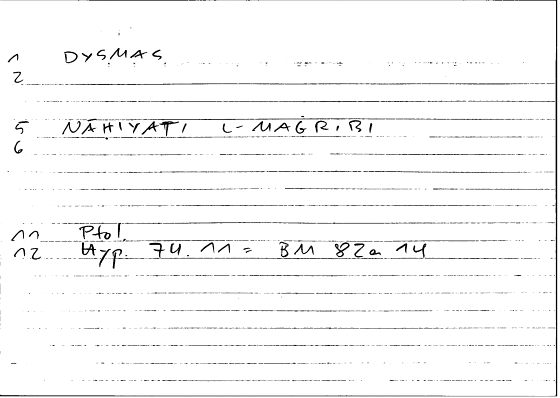 1 DYSMAS
2
5 NĀḤIYATI L-MAĠRIBI
6
11 Ptol.
12 Hyp. 74.11 = BM 82a 14